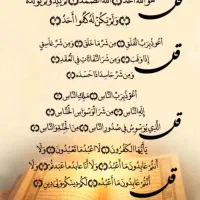 قل هُوَ اللَّهُ أَحَدٌ ۝ اللَّهُ الصَّمَدُ ۝ لَمْ يَلِدْ وَلَمْ يُولَدْ
۝ وَلَمْ يَكُنْ لَهُ كُفُوًا أَحَدٌ ۝
قل أَعُوذُ بِرَبِّ الْفَلَقِ ۝ مِنْ شَرِّ مَا خَلَقَ ۝ وَمِنْ شَرِّ غَاسِقٍ
إِذَا وَقَبَ ۝ وَمِنْ شَرِّ النَّفَّاثَاتِ فِي الْعُقَدِ ۝
وَمِنْ شَرِّ حَاسِدٍ إِذَا حَسَدَ ۝
قل أَعُوذُ بِرَبِّ النَّاسِ ۝ مَلِكِ النَّاسِ ۝
إِلَهِ النَّاسِ ۝ مِنْ شَرِّ الْوَسْوَاسِ الْخَنَّاسِ ۝
الَّذِي يُوَسْوِسُ فِي صُدُورِ النَّاسِ ۝ مِنَ الْجِنَّةِ وَالنَّاسِ ۝
قل يَا أَيُّهَا الْكَافِرُونَ ۝ لَا أَعْبُدُ مَا تَعْبُدُونَ ۝ وَلَا
أَنْتُمْ عَابِدُونَ مَا أَعْبُدُ ۝ وَلَا أَنَا عَابِدٌ مَا عَبَدْتُمْ ۝ وَلَا
أَنْتُمْ عَابِدُونَ مَا أَعْبُدُ ۝ لَكُمْ دِينُكُمْ وَلِيَ دِينِ ۝